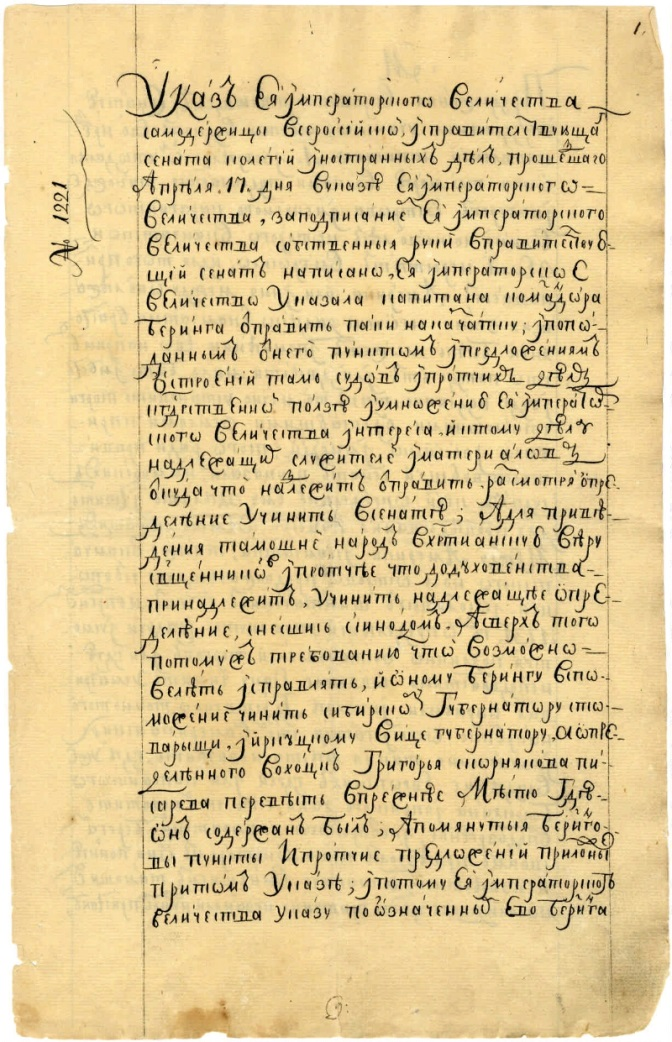 1.
№ 1221
Указъ Ея императорского величества
самодержицы всероссійской, isправителствующаго
сената колегій иностранныхъ делъ, прошедшаго
Апреля. 17. дня вуказе Ея императорского
величества, заподписаниемъ Ея императорского
величества собственныя руки вправителствую-
щій сенатъ написано, Ея императорское
величество указала капитана командора
Беринга отправить паки накамчатку; ипопо-
даннымъ отнего пунктомъ ипредложениямъ
остроеній тамо судовъ ипротчихъ делъ
кгдрственной ползе иумножению Ея император-
ского величества интереса, иктому делу
надлежащихъ служителей иматериаловъ
откуда что надлежитъ отправить разсмотря опре-
деление учинить всенате; Адля приве-
дения тамошнего народа вхрстианскую веру
священниковъ ипротчее что додуховенства
принадлежитъ, учинить надлежащее опре-
деление, снесшись ссинодомъ. Асверхъ того
потомужъ требованию что возможно
велеть исправлять, ионому Берингу вспо-
можение чинить сибирскому Губернатору ста-
рымъ, ииркуцкому вице губернатору, аопре-
деленного вохоцкъ Григорья скорнякова пи-
сарева перевесть впрежнее место где
онъ содержанъ былъ; Апомянутыя беринго-
вы пункты ипротчие предложеній приложены
притомъ указе; ипотому Ея императорского
величества указу пообозначенному ево беринга